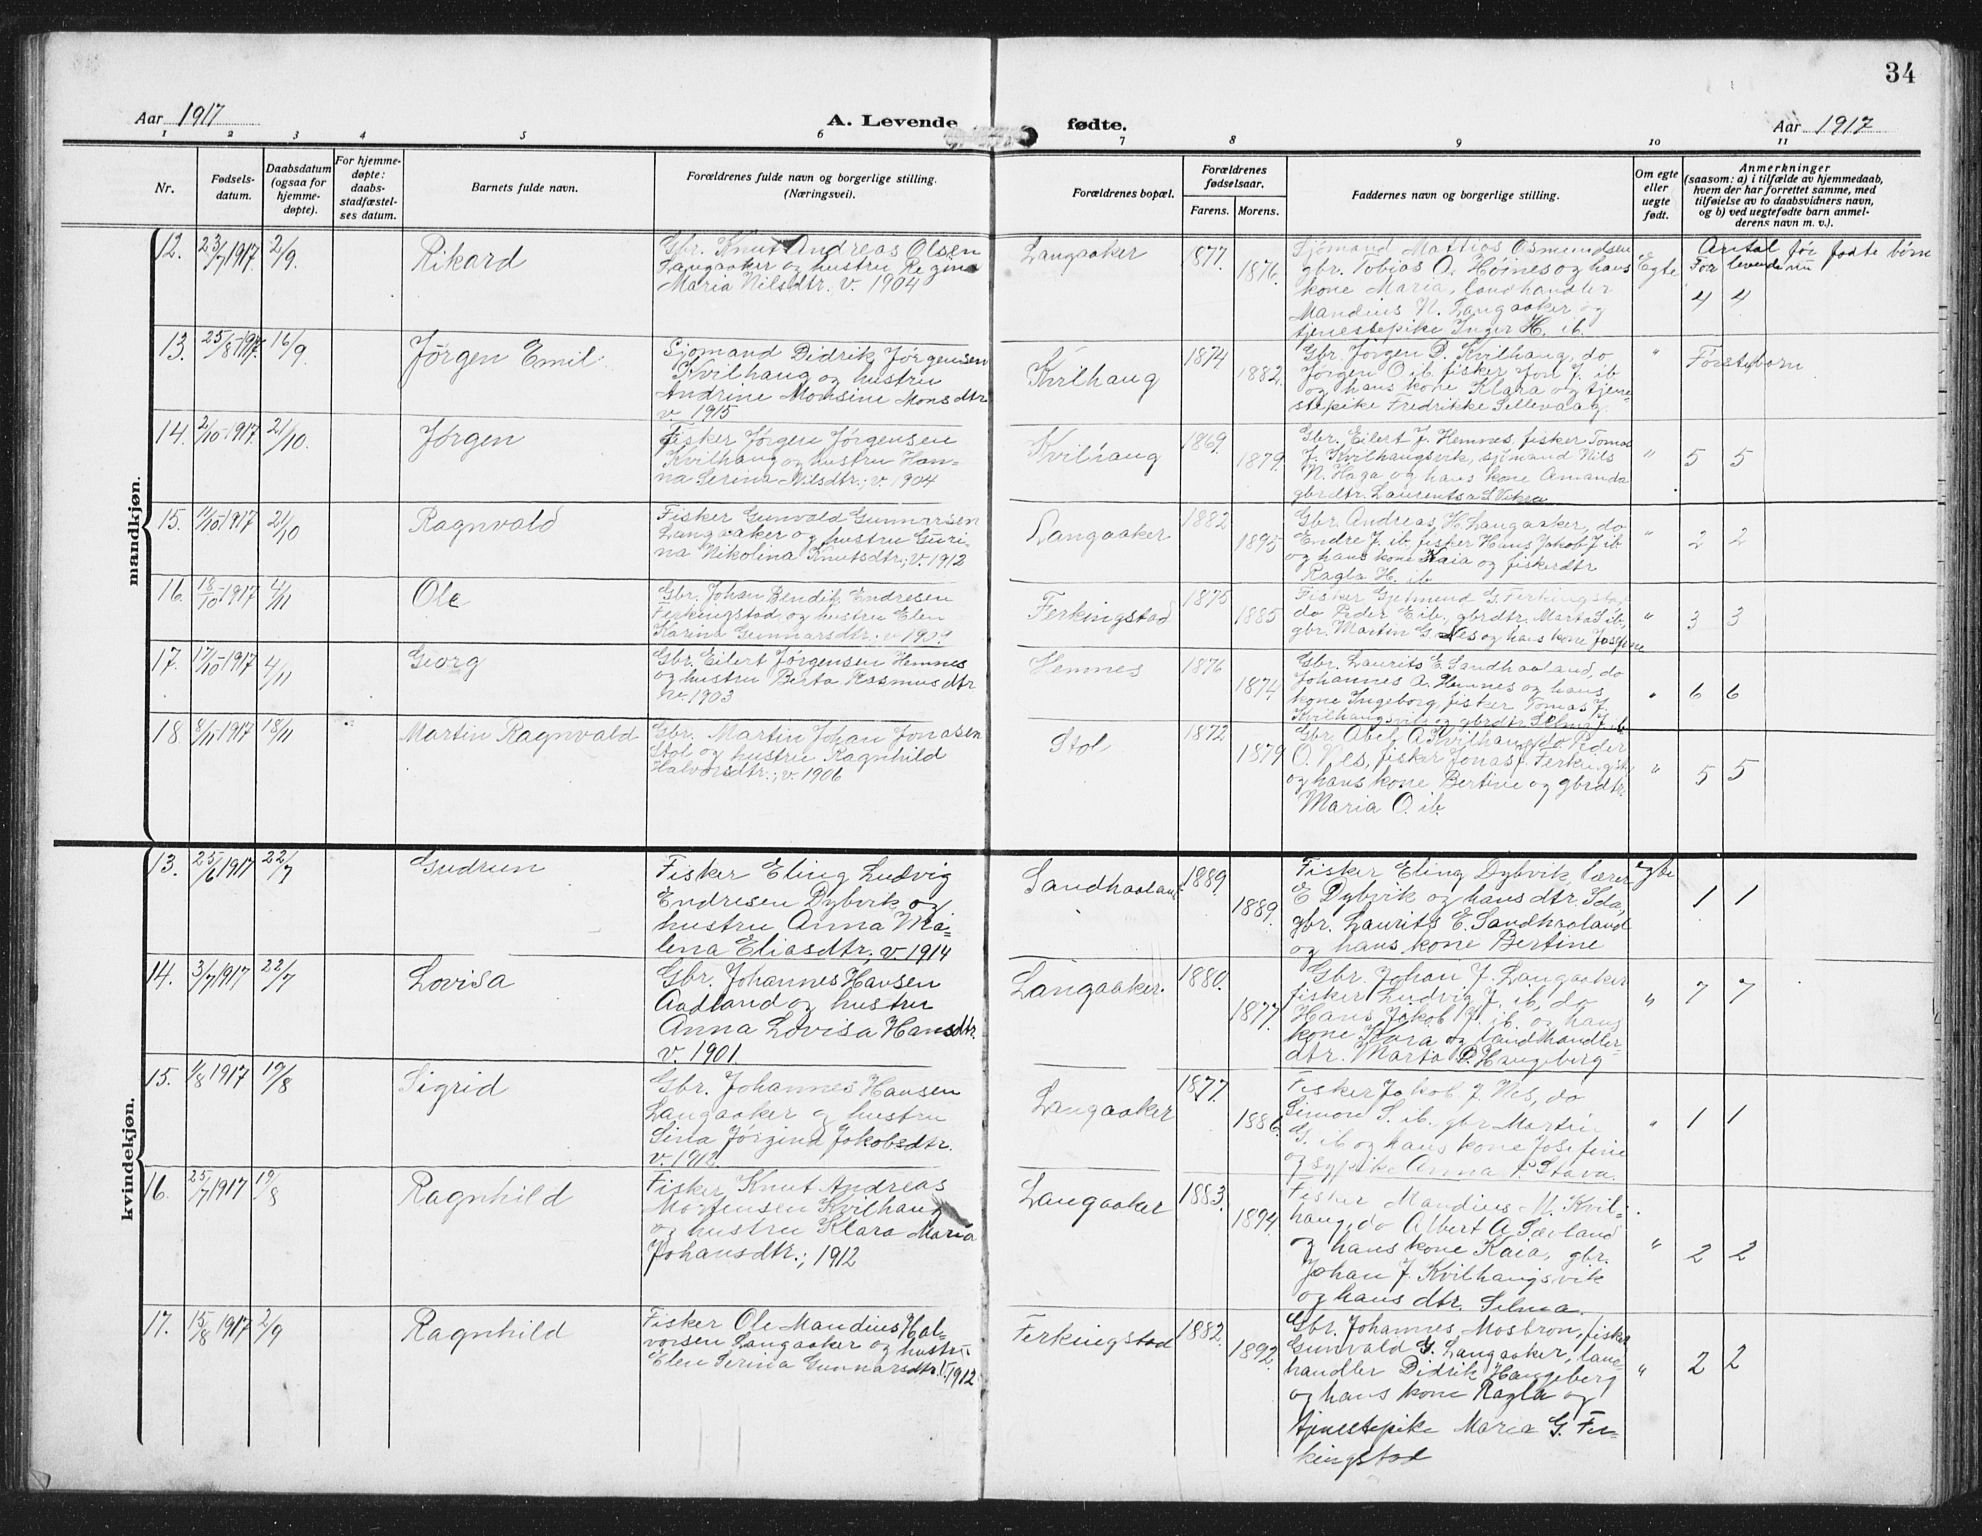 34
Aar 1917
A. Levende
fødte.
Aar 1917
1 2 3 4 5 6 7 8 9 10 11
Nr.
Fødsels-
datum.
Daabsdatum
(ogsaa for
hjemme-
døpte).
For hjemme-
døpte:
daabs-
stadfæstel-
ses datum.
Barnets fulde navn.
Forældrenes fulde navn og borgerlige stilling.
(Næringsvei).
Forældrenes bopæl.
Forældrenes
fødselsaar.
Farens. Morens.
Faddernes navn og borgerlige stilling.
Om egte
eller
uegte
født.
Anmerkninger
(saasom: a) i tilfælde av hjemmedaab,
hvem der har forrettet samme, med
tilføielse av to daabsvidners navn,
og b) ved uegtefødte barn anmel-
derens navn m. v.).
mandkjøn.
12. 23/7 1917. 2/9. Rikard
Gbr. Knut Andreas Olsen
Langaaker og hustru Regine
Maria Nilsdtr. v. 1904
Langaaker 1877. 1876.
Sjömand Mattias Osmundsen
gbr. Tobias O. Høines og hans
kone Maria, landhandler
Mandius N. Langaaker og
tjenestepike Inger H. ib.
Egte
Antal før fødte børn
For levende nu
4 4
13. 25/8 1917. 16/9. Jörgen Emil.
Sjömand Didrik Jörgensen
Kvilhaug og hustru
Andrine Monsine Monsdtr
v. 1915
Kvilhaug 1874 1882.
Gbr. Jörgen D. Kvilhaug, do
Jörgen O. ib. fisker Jon J. ib
og hans kone Klara og tjene-
stepike Fredrikke Sellevaag.
" Førstebarn
14. 2/10 1917. 21/10. Jörgen
Fisker Jörgen Jörgensen
Kvilhaug og hustru Han-
na Serina Nilsdtr.; v. 1904
Kvilhaug 1869. 1879.
Gbr. Eilert J. Hemnes, fisker Tomas
J. Kvilhaugsvik, sjömand Nils
N. Haga og hans kone Amanda
gbrdtr. Laurentsa S. Vikra
" 5 5
15. 11/10 1917 21/10 Ragnvald
Fisker Gunvald Gunnarsen
Langaaker og hustru Guri-
na Nikolina Knutsdtr.; v. 1912
Langaaker 1882 1895
Gbr. Andreas H. Langaaker, do
Endre J. ib. fisker Hans Jakob J. ib
og hans kone Kaia og fiskerdtr
Ragla H. ib.
" 2 2
16. 18/10 1917 4/11 Ole
Gbr. Johan Bendik Endresen
Ferkingstad og hustru Elen
Karina Gunnarsdtr.
Ferkingstad 1875 1885
Fisker Gjetmund G. Ferkingstad
do Peder E. ib., gbrdtr. Marta S. ib.,
gbr. Martin G. Nes og hans kone Josefine
" 3 3
17. 17/10 1917 4/11 Georg
Gbr. Eilert Jörgensen Hemnes
og hustru Berta Rasmusdtr
v. 1903
Hemnes 1876 1874
Gbr. Laurits E. Sandhaaland, do
Johannes A. Hemnes og hans
kone Ingeborg, fisker Tomas J.
Kvilhaugsvik og gbrdtr Selma J. ib
" 6 6
18 8/11 1917 18/11 Martin Ragnvald
Gbr. Martin Johan Jonasen
Stol og hustru Ragnhild
Halvorsdtr.; v. 1906
Stol 1872 1879
Gbr. Abel A. Kvilhaug, do Peder
O. Nes, fisker Jonas J. Ferkingst.
og hans kone Bertine og gbrdtr.
Maria O. ib.
" 5 5
kvindekjøn.
13. 25/6 1917 22/7 Gudrun
Fisker Eling Ludvig
Endresen Dybvik og
hustru Anna Ma-
lena Eliasdtr.; v. 1914
Sandhaaland 1889. 1889.
Fisker Eling Dybvik, lærer
E. Dybvik og hans dtr. Ida,
gbr. Laurits E. Sandhaaland
og hans kone Bertine
egte 1 1
14. 3/7 1917 22/7 Lovisa
Gbr. Johannes Hansen
Aadland og hustru
Anna Lovisa Hansdtr.
v. 1901
Langaaker. 1880. 1877.
Gbr. Johan J. Langaaker
fisker Ludvig J. ib, do
Hans Jakob J. ib. og hans
kone Klara og landhandler-
dtr. Marta D. Haugeberg
" 7 7
15. 1/8 1917 19/8 Sigrid
Gbr. Johannes Hansen
Langaaker og hustru
Sina Jörgina Jakobsdtr.
v. 1912
Langaaker 1877. 1886.
Fisker Jakob J. Nes, do
Simon S. ib. gbr Martin
G. ib og hans kone Josefine
og sypike Anna P. Stava.
" 1 1
16. 25/7 1917 19/8 Ragnhild
Fisker Knut Andreas
Mortensen Kvilhaug
og hustru Klara Maria
Johansdtr.; 1912
Langaaker 1883. 1894.
Fisker Mandius M. Kvil-
haug, do Albert A. Sævland
og hans kone Kaia, gbr.
Johan J. Kvilhaugsvik
og hans dtr. Selma.
" 2 2
17. 15/8 1917 2/9 Ragnhild
Fisker Ole Mandius Hal-
vorsen Langaaker og hustru
Elen Serina Gunnarsdtr. v. 1912.
Ferkingstad 1882. 1892.
Gbr. Johannes Mosbron, fisker
Gunvald G. Langaaker, land-
handler Didrik Haugeberg
og hans kone Ragla og
tjenestepike Maria G. Fer-
kingstad
" 2 2